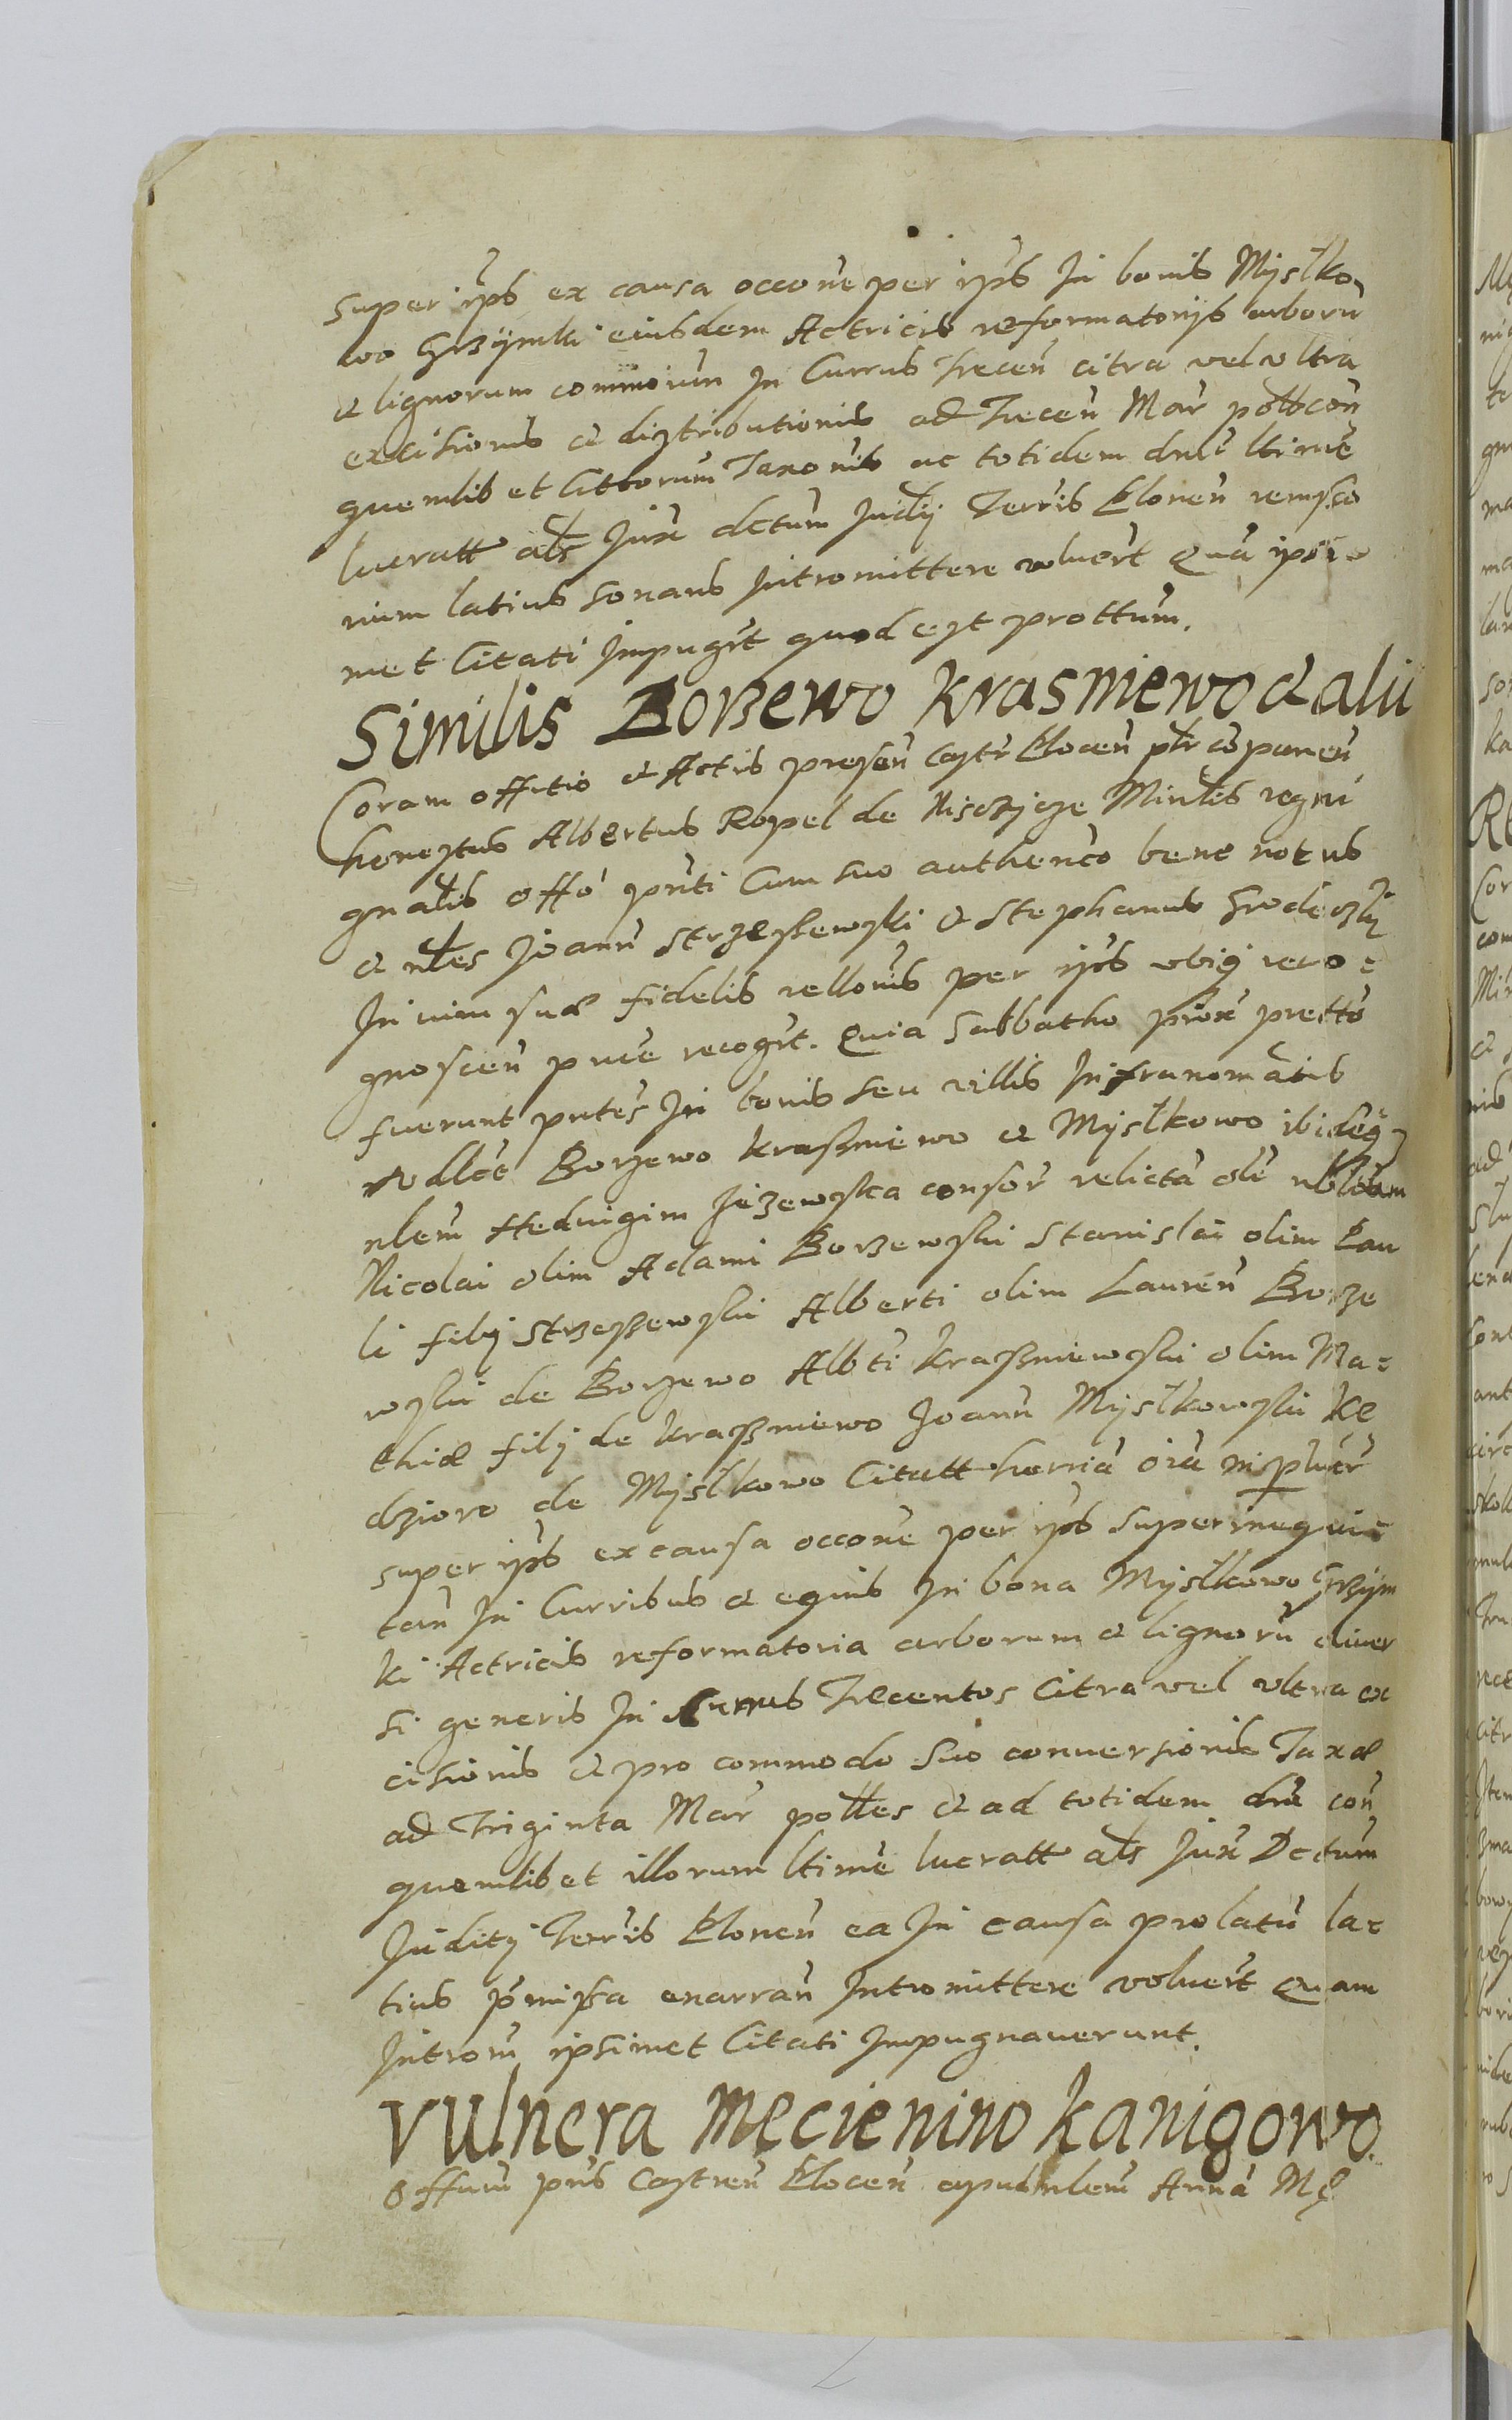 super ipsos ex causa occone per ipsos In bonis Myslko-
wo Grzymki eiusdem Actricis reformatorijs arborū
et lignorum commoium In Currus Trecen citra vel ultra
excisionis et distributionis ad Trecen Mar
quemlibet Taxonis ac totidem ltime
lucratt als Jux dctum Judij Terris Plonen
rium latius sonans Intromittere voluert Quā ipsi
met Citati Impugrt quod est prottum.
Similis Borzewo Krasniewo et alii
Coram officio et Actis presen Castr Plocen
honestus Albertus Ropel de Nisczyce Minlis regni
gnalis offo pnti Cum suo authenco bene notus
et nles Joann Strzeszewski et Stephanus Grodeczki
In vim suæ fidelis rellonis per ipsos ubiq reco-
gnoscen puce recogrt. Quia Sabbatho prox pretto
fuerunt pntes In bonis seu villis Infranomatis
vdlcet Borzewo Kraszniewo et Myslkowo
nlem Hedvigim Jezewska consor relicta olim
Nicolai olim Adami Borzewski Stanislai olim Pau
li filij Strzeszewski Alberti olim Lauren Borze
wski de Borzewo Albti Kraszniewski olim Ma-
thiæ filij de Kraszniewo Joann Myslkowski Kę
dzioro de Myslkowo Citatt
super ipsos ex causa occone per ipsos
In Curribus et equis In bona Myslkowo Grzym
ki Actricis reformatoria arborum et lignorū diver
si generis In Currus Trecentos Citra vel ultra ex
cisionis et pro commodo suo conversionis Taxæ
ad Triginta Mar polles et ad totidem con
quemlibet illorum ltime lucratt als Jux Dctum
Juditij Terris Plonen ea In causa prolatū la-
tius pmissa enarran Intromittere voluert Quam
Introm ipsimet Citati Impugnaverunt.
Vulnera Mecienino Kanigowo.
Offum pns Castren Plocen apud nlem Annā Mę